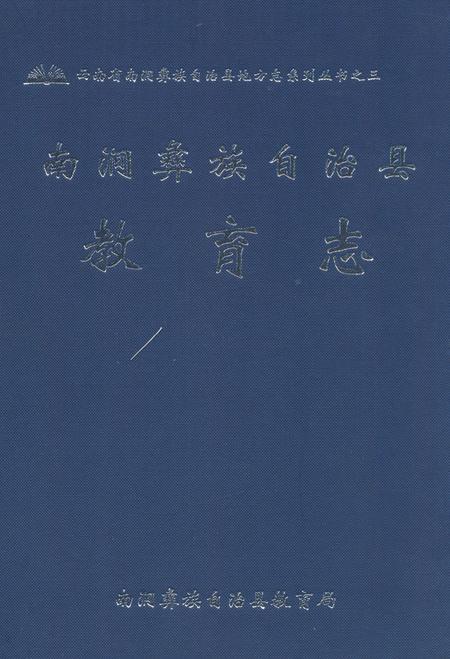 云南省南涧彝族自治县地方志系列丛书之三
南涧彝族自治县
教育志
南涧彝族自治县教育局